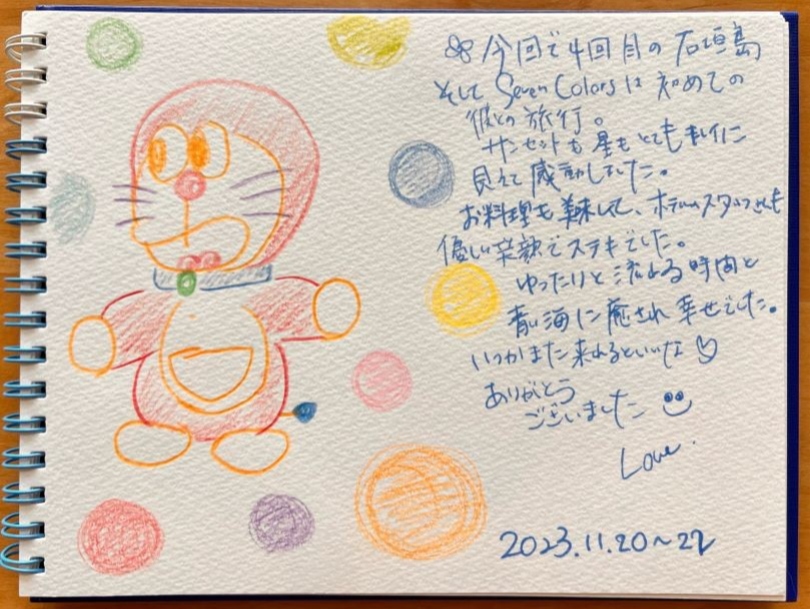 今回で4回目の石垣島
そしてSeven Colorsは初めての
彼との旅行。
サンセットも星もとてもキレイに
見えて感動しました。
お料理も美味しくて、ホテルスタッフさんも
優しい笑顔でステキでした。
ゆったりと流れる時間と
青い海に癒され幸せでした。
いつかまた来れるといいな♡
ありがとう
ございました
Love.
2023.11.20〜22